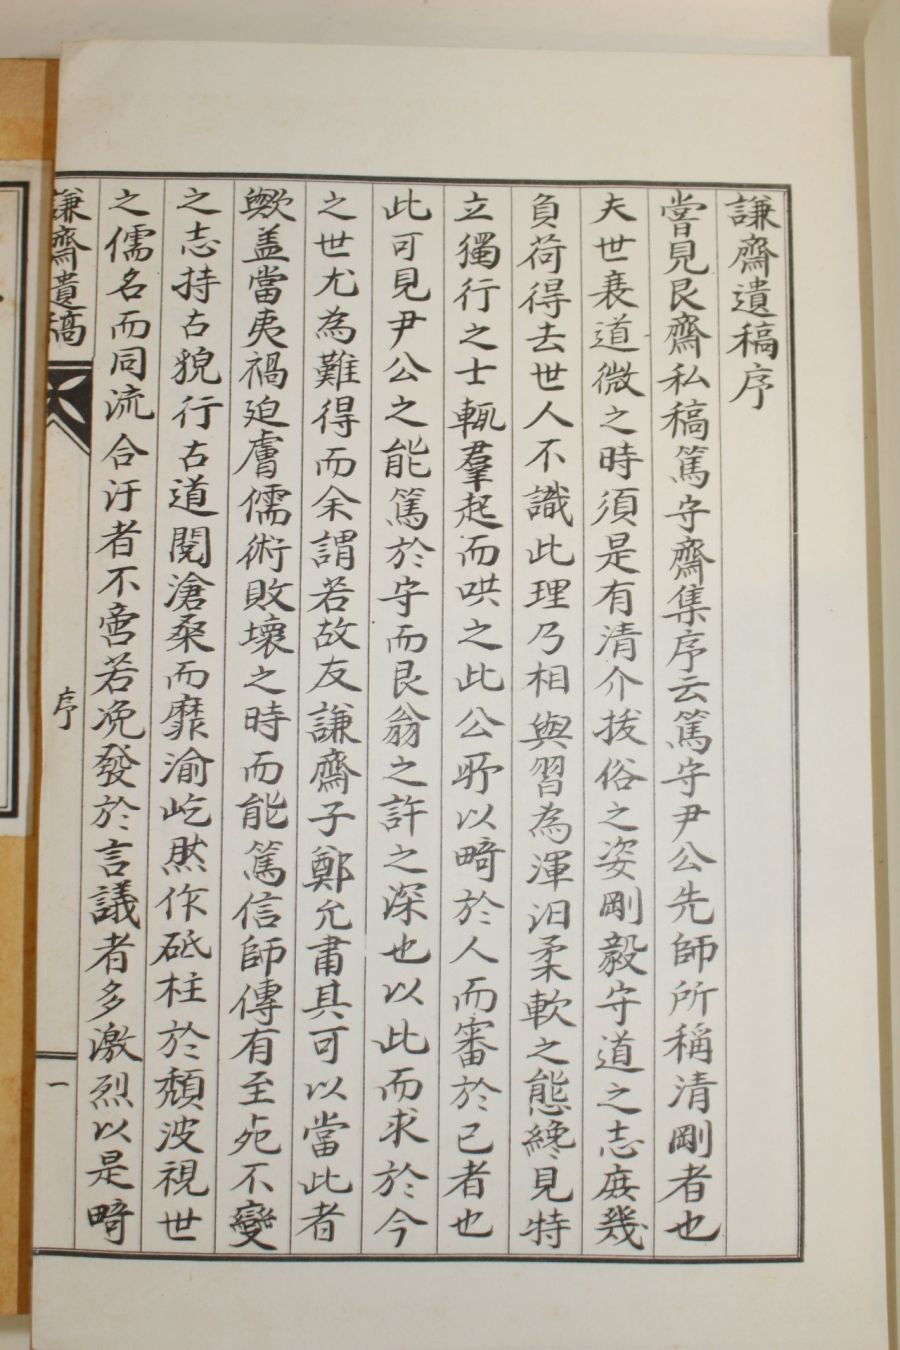 謙齋遺稿序
嘗見艮齋私稿篤守齋集序云篤守尹公先師所稱清剛者也
夫世衰道微之時須是有清介拔俗之姿剛毅守道之志庶幾
負荷得去世人不識此理乃相與習為渾汨柔軟之態纔見特
立獨行之士輒羣起而哄之此公所以畸於人而審於己者也
此可見尹公之能篤於守而艮翁之許之深也以此而求於今
之世尤為難得而余謂若故友謙齋子鄭允甫其可以當此者
歟盖當夷禍迫膚儒術敗壞之時而能篤信師傳有至死不變
之志持古貌行古道閱滄桑而靡渝屹然作砥柱於頹波視世
之儒名而同流合汙者不啻若浼發於言議者多激烈以是畸
謙齋遺稿
序
一